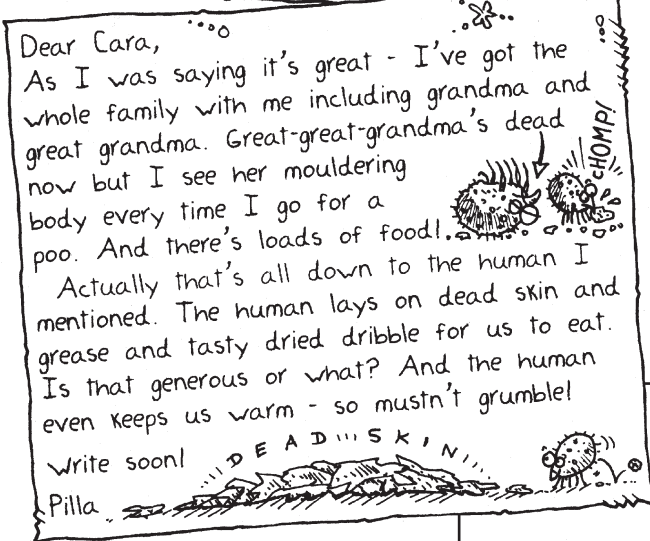 Dear Cara,
As I was saying it's great - I've got the
whole family with me including grandma and
great grandma. Great-great-grandma's dead
now but I see her mouldering
body every time I go for a
poo. And there's loads of food!
Actually that's all down to the human I
mentioned. The human lays on dead skin and
grease and tasty dried dribble for us to eat.
Is that generous or what? And the human
even keeps us warm - so mustn't grumble!
Write soon!
Pilla
CHOMP!
DEAD SKIN